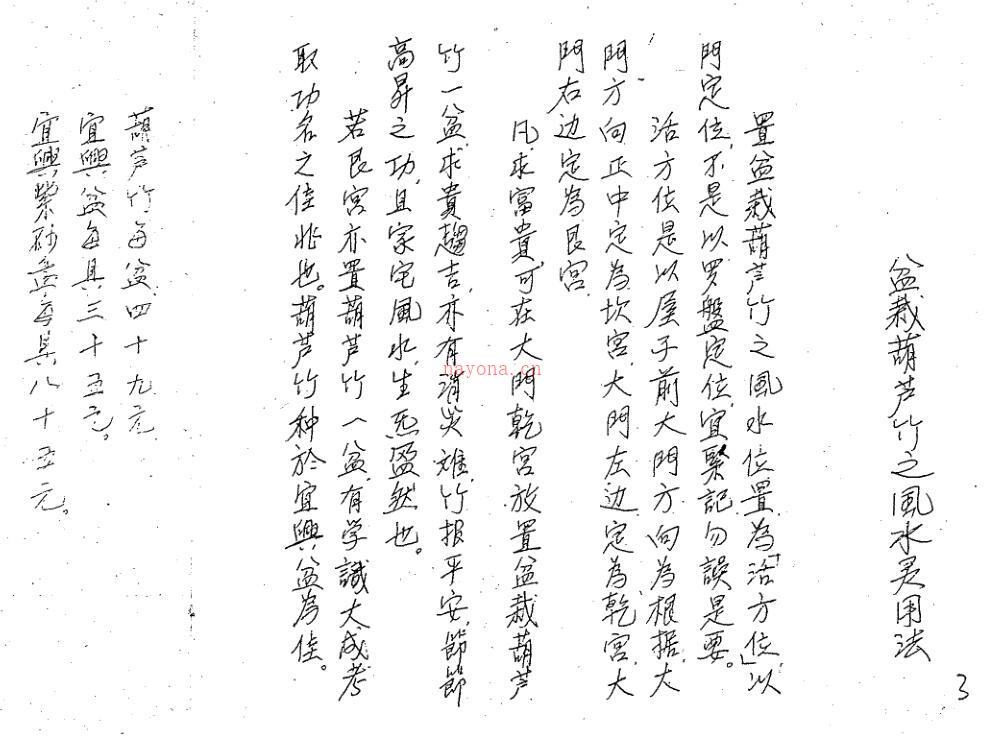 盆栽葫芦竹之風水灵用法
置盆栽葫芦竹之風水位置為「活方位」以
門定位,不是以罗盤定位,宜緊記勿誤是要。
活方位是以屋子前大門方向為根据,大
門方向正中定為坎宮,大門左边定為乾宮,大
門右边定為艮宮.
凡求富貴,可在大門乾宮放置盆栽葫芦
竹一盆,求貴趨吉,亦有消災难,竹报平安,節節
高昇之功,且家宅風水,生炁盈然也。
若艮宮亦置葫芦竹一盆,有学識大成考
取功名之佳兆也。葫芦竹种於宜興盆為佳。
葫芦竹每盆,四十九元
宜興盆每具三十五元。
宜興紫砂盆每具八十五元。
3
nayona.cn